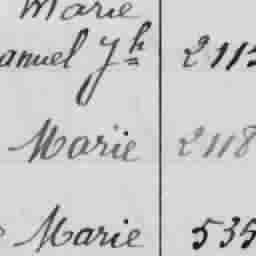 Marie
anuel Jh 2115
Marie 2118
Marie 535